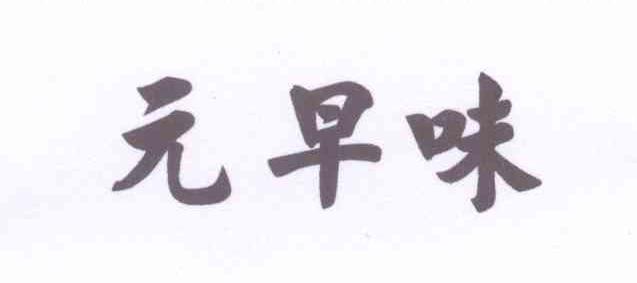 元早味